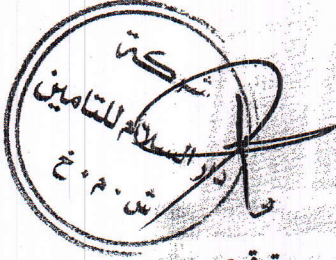 شركة
دار السلام للتامين
ش.م.خ